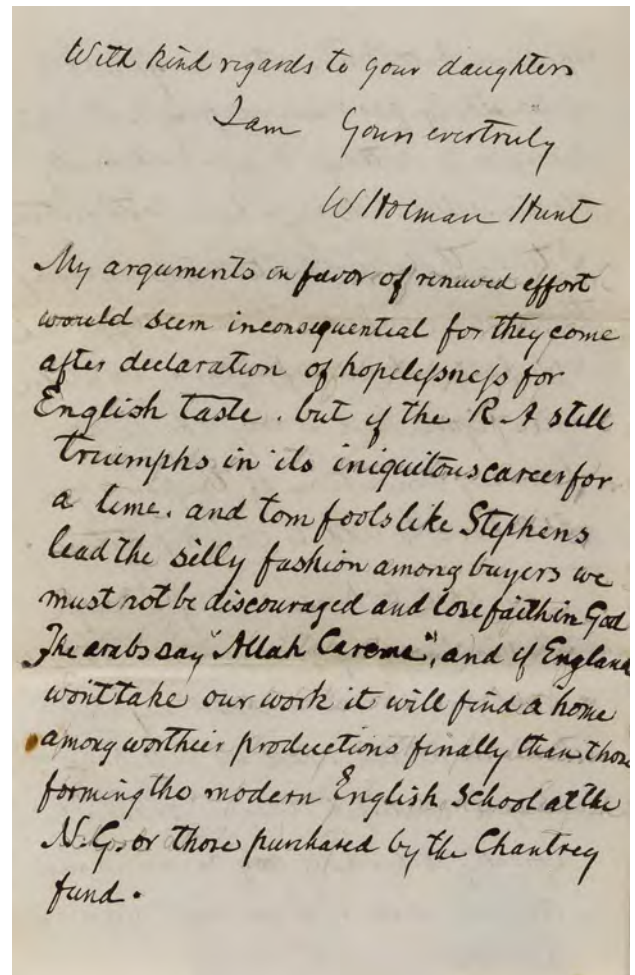 With kind regards to your daughters
I am Yours ever truly
W Holman Hunt
My arguments in favor of renewed effort
would seem inconsequential for they come
after declaration of hopelessness for
English taste. but if the R A still
triumphs in its iniquitous career for
a time. and tom fools like Stephens
lead the silly fashion among buyers we
must not be discouraged and lose faith in God
The arabs say "Allah Careme", and if England
wont take our work it will find a home
among worthier productions finally than those
forming the modern English School at the
N.G. or those purchased by the Chantrey
fund.